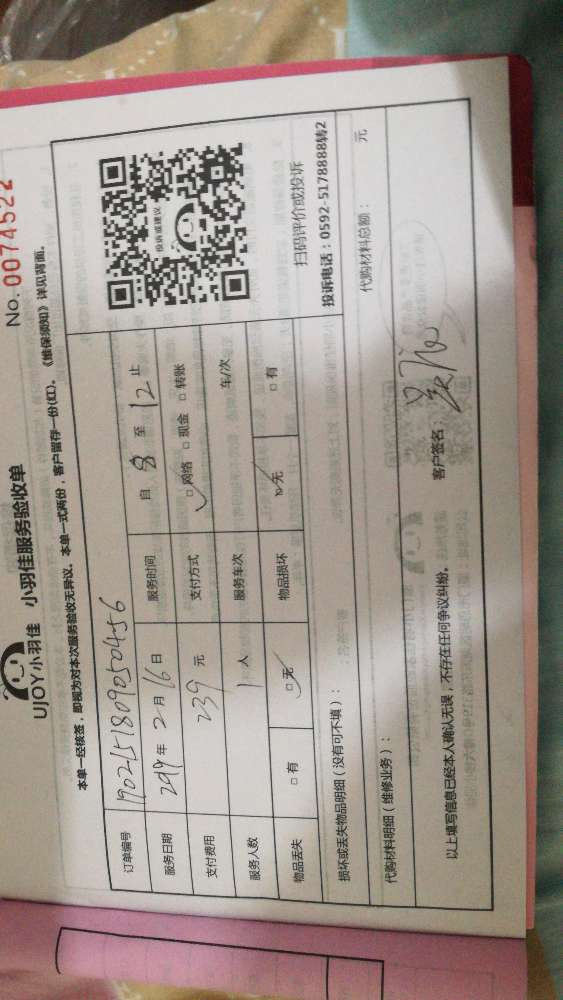 No. 0074522
UJOY小羽佳 小羽佳服务验收单
本单一经核签，即视为对本次服务验收无异议。本单一式两份，客户留存一份(红)。《维保须知》详见背面。
订单编号 1902151809050456
服务日期 2019年2月16日 服务时间 自 8 至 12 止
支付费用 239 元 支付方式 □网络 □现金 □转账
服务人数 1 人 服务车次 车/次
物品丢失 □有 □无 物品损坏 □无 □有
投诉或建议
扫码评价或投诉
投诉电话：0592-5178888转2
损坏或丢失物品明细（没有可不填）：
代购材料明细（维修业务）： 代购材料总额： 元
以上填写信息已经本人确认无误，不存在任何争议纠纷。 客户签名：